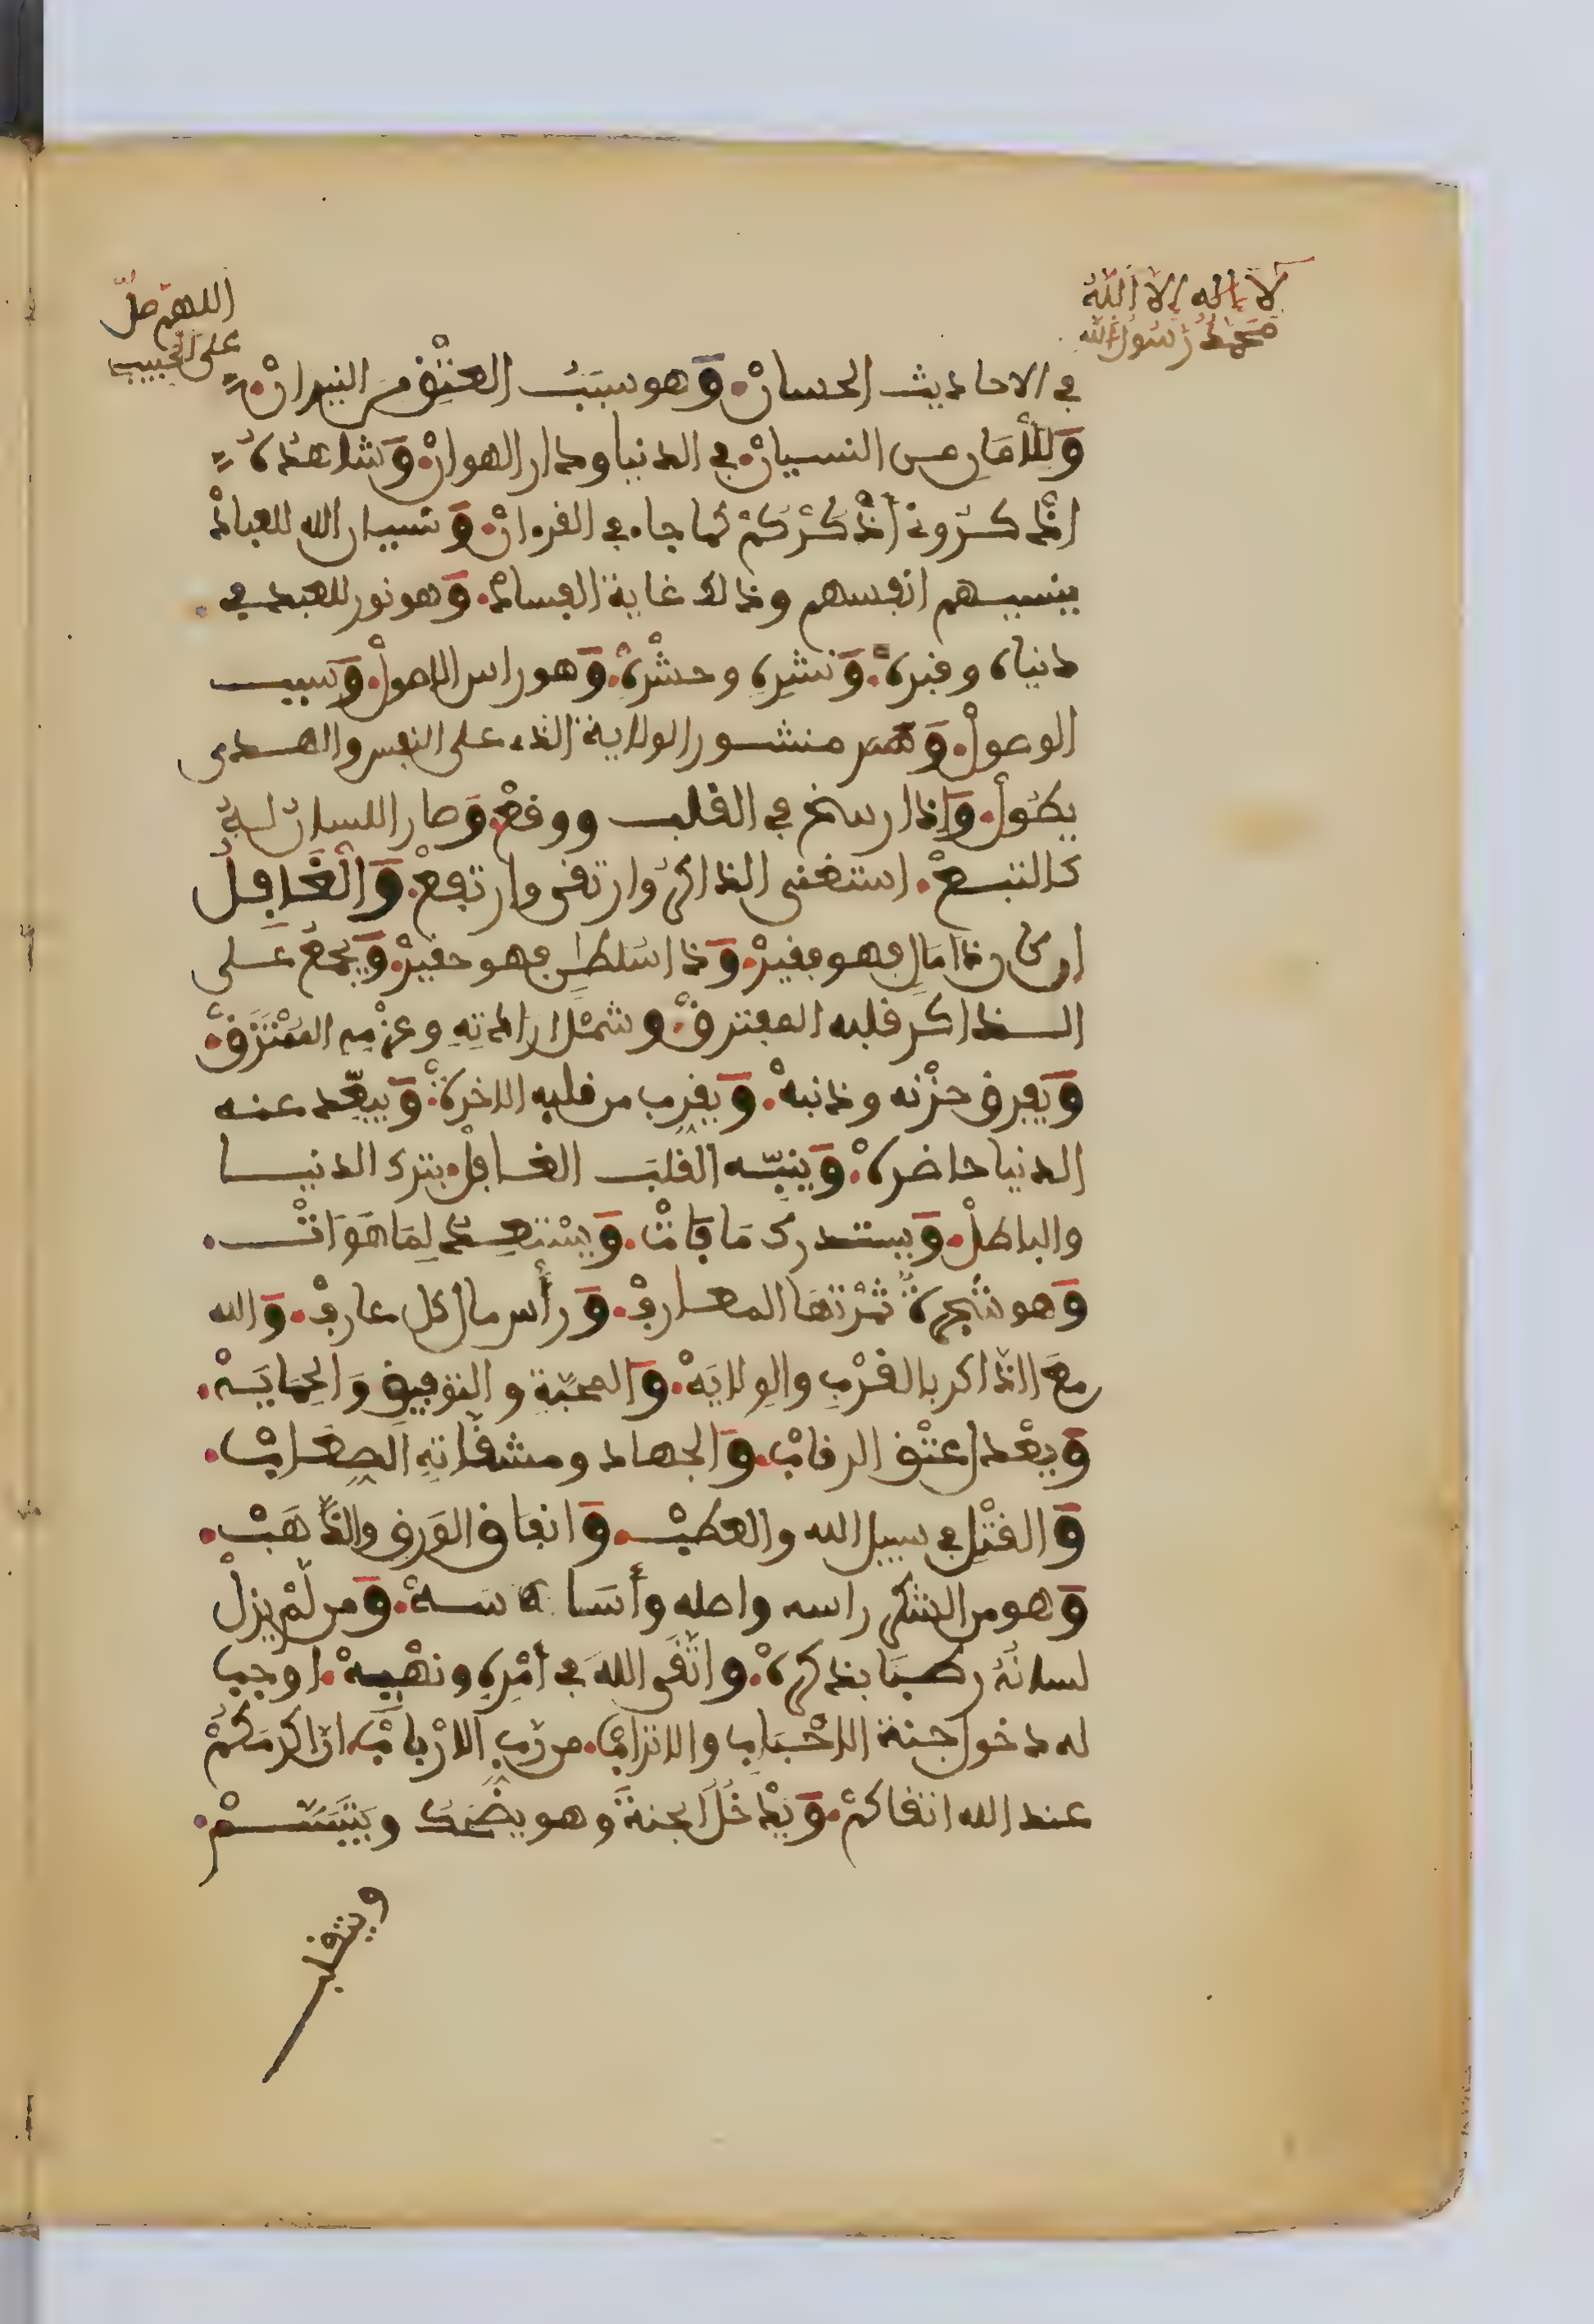 لا إله إلا الله
محمد رسول الله
اللهم صل
على الحبيب
في الاحاديث الحسانْ. وَهو سبَبُ العتْقِ من النيرانْ.
وَللأمَانِ من النسيانْ. في الدنيا ودار الهوانْ وَشاهدُهُ
اذْكرونِے أذْكُرْكُمْ كما جاء في القرءانْ. وَنسيان الله للعبادْ
ينسيهم انفسهم وذالك غاية الفسادْ. وَهو نور للعبد في
دنياه وقبرهْ. وَنشرِه وحشْرِهْ. وَهو راس الاصولْ. وَسبب
الوصولْ. وَهو منشور الولاية الذے على النفس والهدى
يطُولْ. وَإذا رسخ في القلب ووقعْ. وَصار اللسانُ لهُ
كالتبعْ. استغنى الذاكرُ وارتقى وارتفعْ. وَالْغَافِلُ
ان كان ذا مَالٍ فهو فقيرْ. وَذا سُلطَنٍ فهو حقيرْ. وَيجمعُ عَلى
الذاكر قلبه المفترقْ. وشمْلَ ارادتِهِ وعزْمِهِ المُفْتَرَقْ.
وَيفرق حزْنه وذنبهْ. وَيقرب من قلبه الاخرةْ. وَيبعّد عنه
الدنيا حاضرهْ. وَينبّه القلبَ الغافِلْ. بترك الدنيا
والباطلْ. وَيستدرك مَا فَاتْ. وَيسْتعدُّ لِمَا هوَ اتْ.
وَهو شجرةٌ ثمْرتهَا المعارفْ. وَرأس مال كل عارفْ. وَالله
معَ الذاكر بالقرْبِ والوِلايَهْ. وَالمحبّةِ والتوفيقِ وَالحِمَايَهْ.
وَيعْدل عتْق الرقابْ. وَالجهاد ومشقّاتِهِ الصعَابْ.
وَالقتْل في سبيل الله والعطبْ. وَانفاق الوَرِق والذّهَبْ.
وَهو من الشكر راسه واصله وأسَاسَهْ. وَمن لَمْ يزلْ
لسانُهُ رطبَا بذكرهْ. واتّقى اللهَ في أمْرِه ونهْيهْ. اوجب
له دخول جنة الاحْبَابِ والاترابْ. من رَبِّ الارْبابْ. انّ اكرمَكمْ
عند الله اتقاكمْ. وَيدْخُلُ الجنةَ وهو يضْحَكُ ويَتَبَسَّمْ.